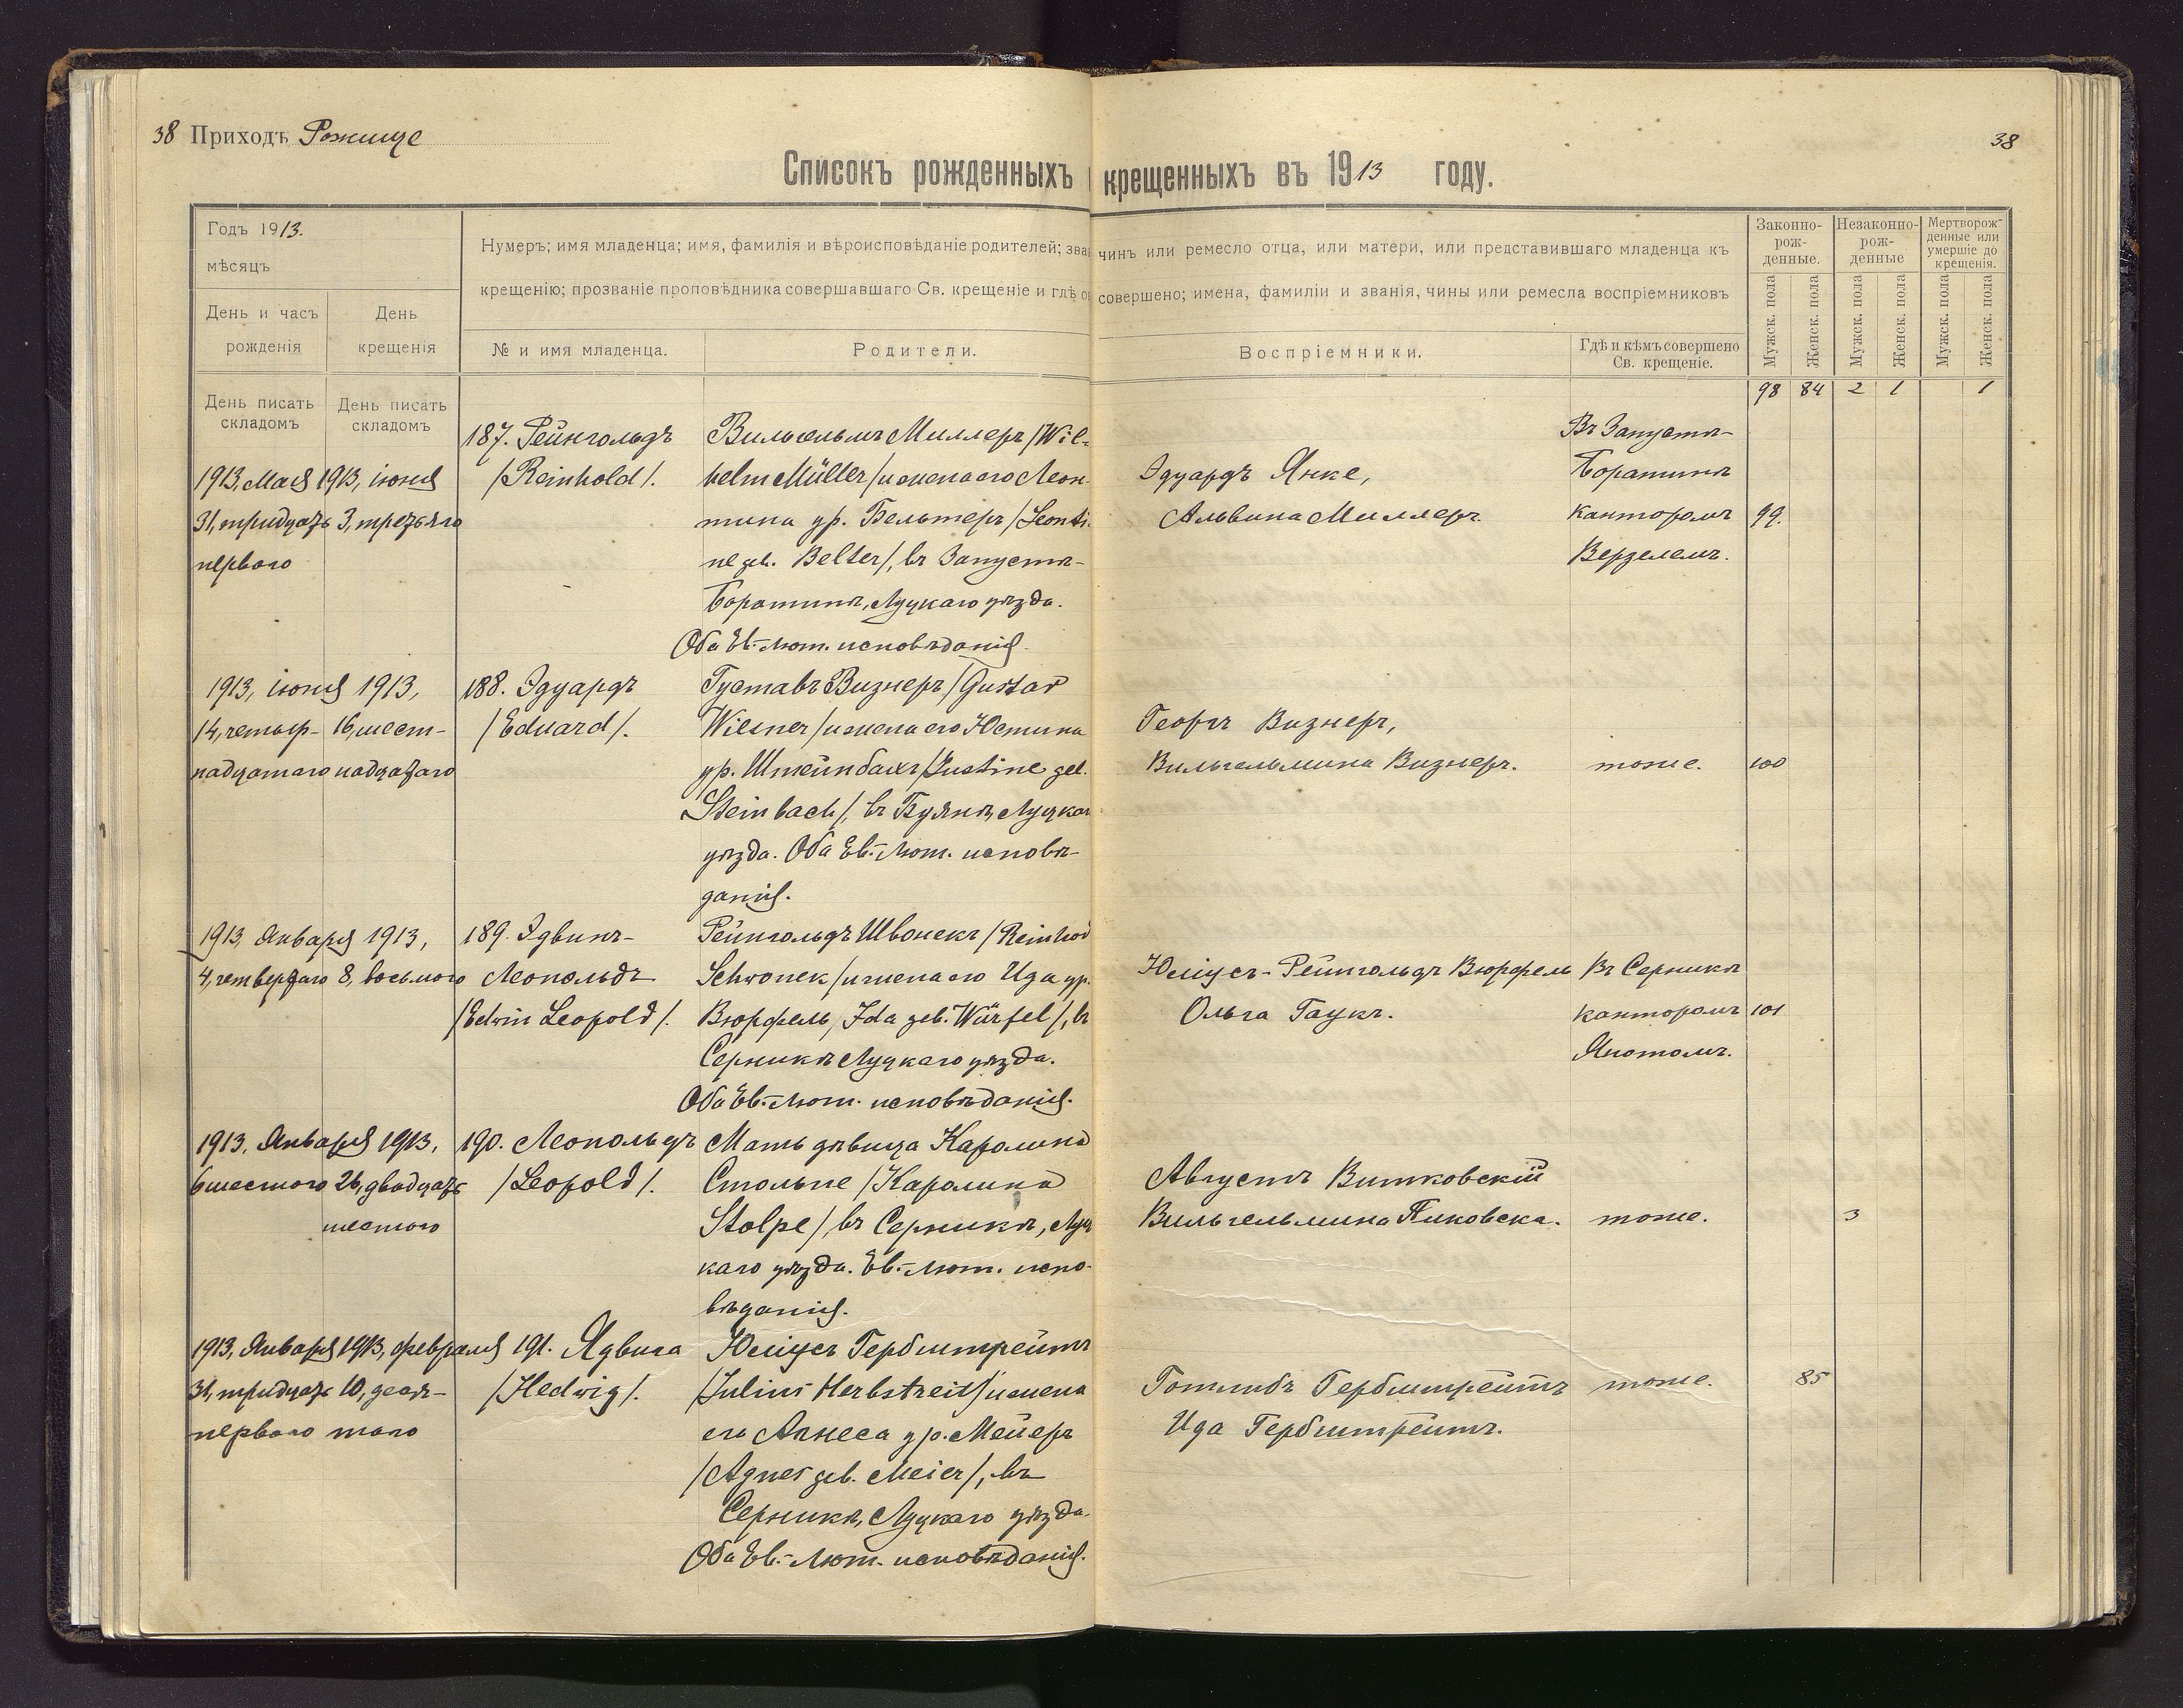 38 Приходъ Рожище
38
Списокъ рожденныхъ крещенныхъ въ 1913 году.
Годъ 1913.
мѣсяцъ
День и часъ рожденія
День крещенія
Нумеръ; имя младенца; имя, фамилія и вѣроисповѣданіе родителей; зва чинъ или ремесло отца, или матери, или представившаго младенца къ
крещенію; прозваніе проповѣдника совершавшаго Св. крещеніе и гдѣ о совершено; имена, фамиліи и званія, чины или ремесла воспріемниковъ
№ и имя младенца.
Родители.
Воспріемники.
Гдѣ и кѣмъ совершено
Св. крещеніе.
Законно-
рож-
денные.
Незаконно-
рож-
денные
Мертворож-
денные или
умершіе до
крещенія.
Мужск. пола
Женск. пола
Мужск. пола
Женск. пола
Мужск. пола
Женск. пола
98 84 2 1 1
День писать
складомъ
День писать
складомъ
1913, мая
31, тридцать
перваго
1913, іюня
3, третьяго
187. Рейнгольдъ
/Reinhold/.
Вильгельмъ Миллеръ /Wil-
helm Müller/ и жена его Леон-
тина ур. Бельтеръ /Leonti-
ne geb. Belter/, въ Запустъ-
Боратинѣ, Луцкаго уѣзда.
Оба Ев.-Лют. исповѣданія.
Эдуардъ Янке,
Альвина Миллеръ.
Въ Запустъ-
Боратинѣ
канторомъ
Верзелемъ.
99.
1913, іюня
14, четыр-
надцатаго
1913,
16, шест-
надцатаго
188. Эдуардъ
/Eduard/.
Густавъ Визнеръ /Gustav
Wiesner/ и жена его Юстина
ур. Штейнбахъ /Justine geb.
Steinbach/, въ Буянѣ, Луцкаго
уѣзда. Оба Ев.-Лют. исповѣ-
данія.
Георгъ Визнеръ,
Вильгельмина Визнеръ.
тоже.
100
1913, Января
4, четвертаго
1913,
8, восьмого
189. Эдвинъ-
Леопольдъ
/Edwin Leopold/.
Рейнгольдъ Швонекъ /Reinhod
Schwonek/ и жена его Ида ур.
Вюрфель /Ida geb. Würfel/, въ
Серникѣ Луцкаго уѣзда.
Оба Ев.-Лют. исповѣданія.
Юліусъ-Рейнгольдъ Вюрфель
Ольга Гаукъ.
Въ Серникѣ
канторомъ
Япотомъ.
101
1913, Января
6 шестого
1913,
26, двадцать
шестого
190. Леопольдъ
/Leopold/.
Мать дѣвица Каролина
Стольпе /Каролина
Stolpe/, въ Серникѣ, Луц
каго уѣзда. Ев.-Лют. испо-
вѣданія.
Августъ Витковскій
Вильгельмина Пиковска.
тоже.
3
1913, Января
31, тридцать
перваго
1913, февраля
10, деся-
таго
191. Ядвига
/Hedwig/.
Юліусъ Гербштрейтъ
/Julius Herbstreit/ и жена
его Агнеса ур. Мейеръ
/Agnes geb. Meier/, въ
Серникѣ, Луцкаго уѣзда.
Оба Ев.-Лют. исповѣданія.
Готлибъ Гербштрейтъ
Ида Гербштрейтъ.
тоже.
85